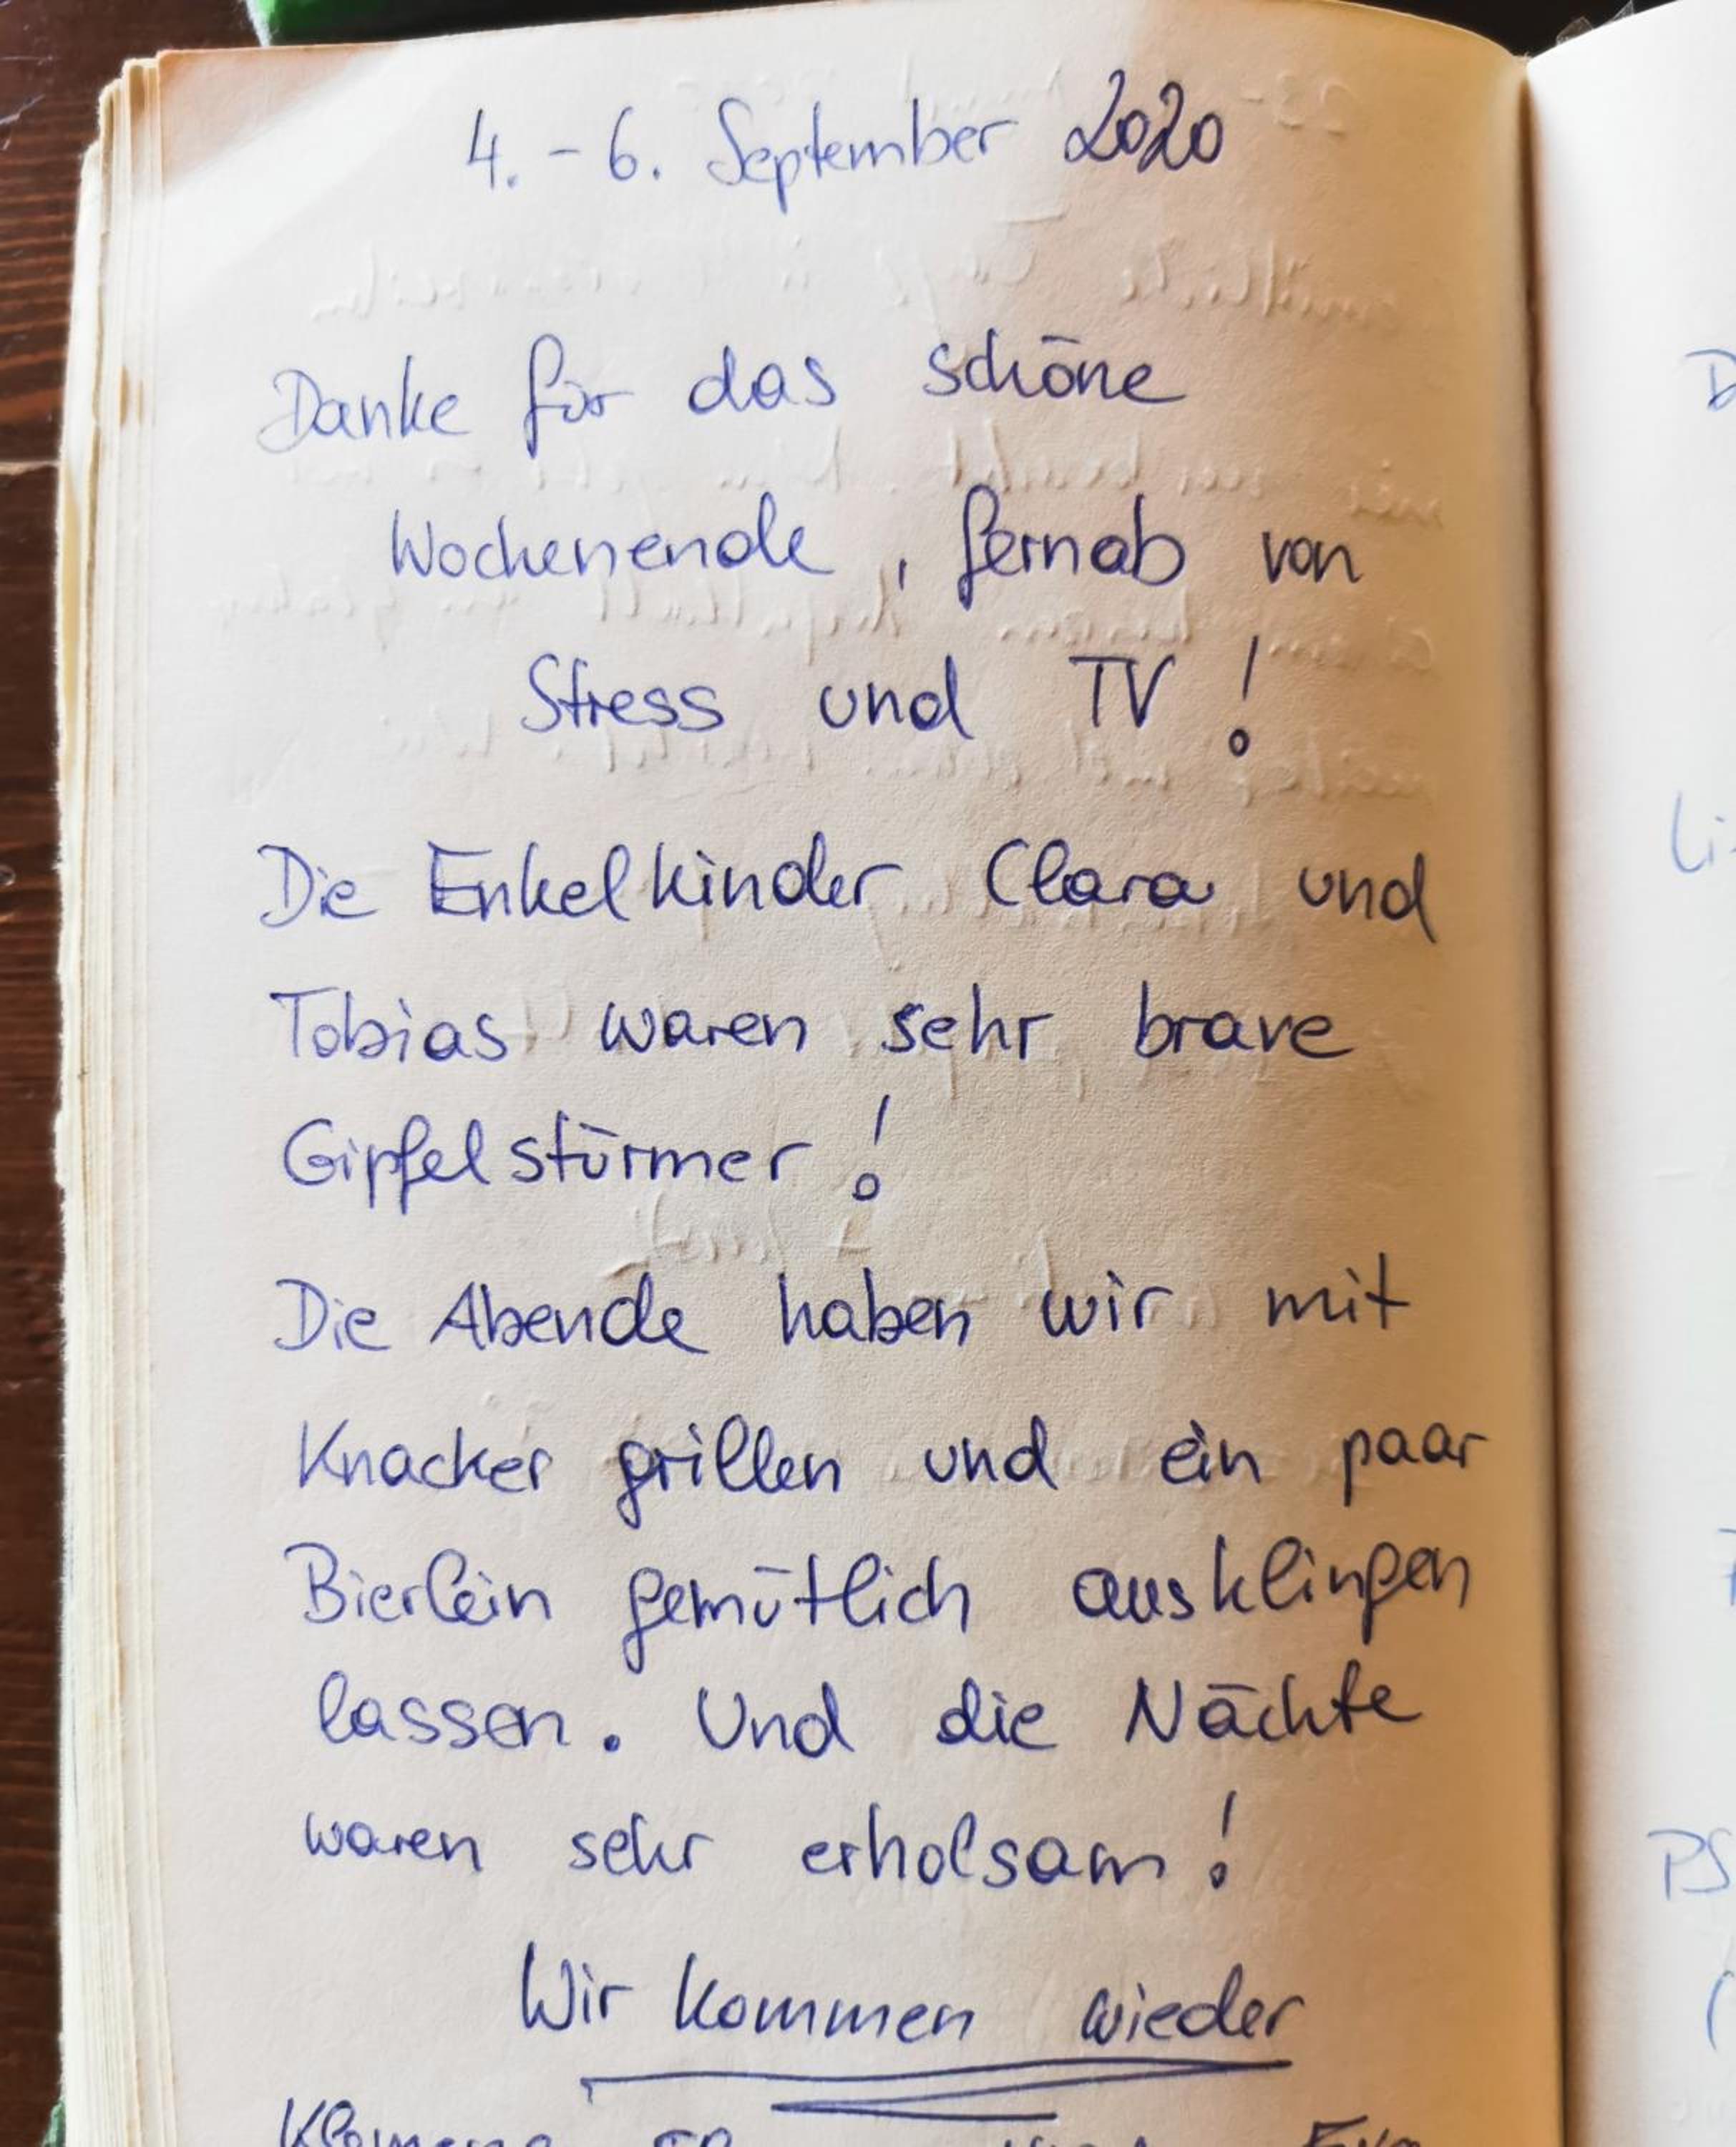 4. - 6. September 2020
Danke für das schöne
Wochenende, fernab von
Stress und TV!
Die Enkelkinder Clara und
Tobias waren sehr brave
Gipfelstürmer!
Die Abende haben wir mit
Knacker grillen und ein paar
Bierlein gemütlich ausklingen
lassen. Und die Nächte
waren sehr erholsam!
Wir kommen wieder
PS